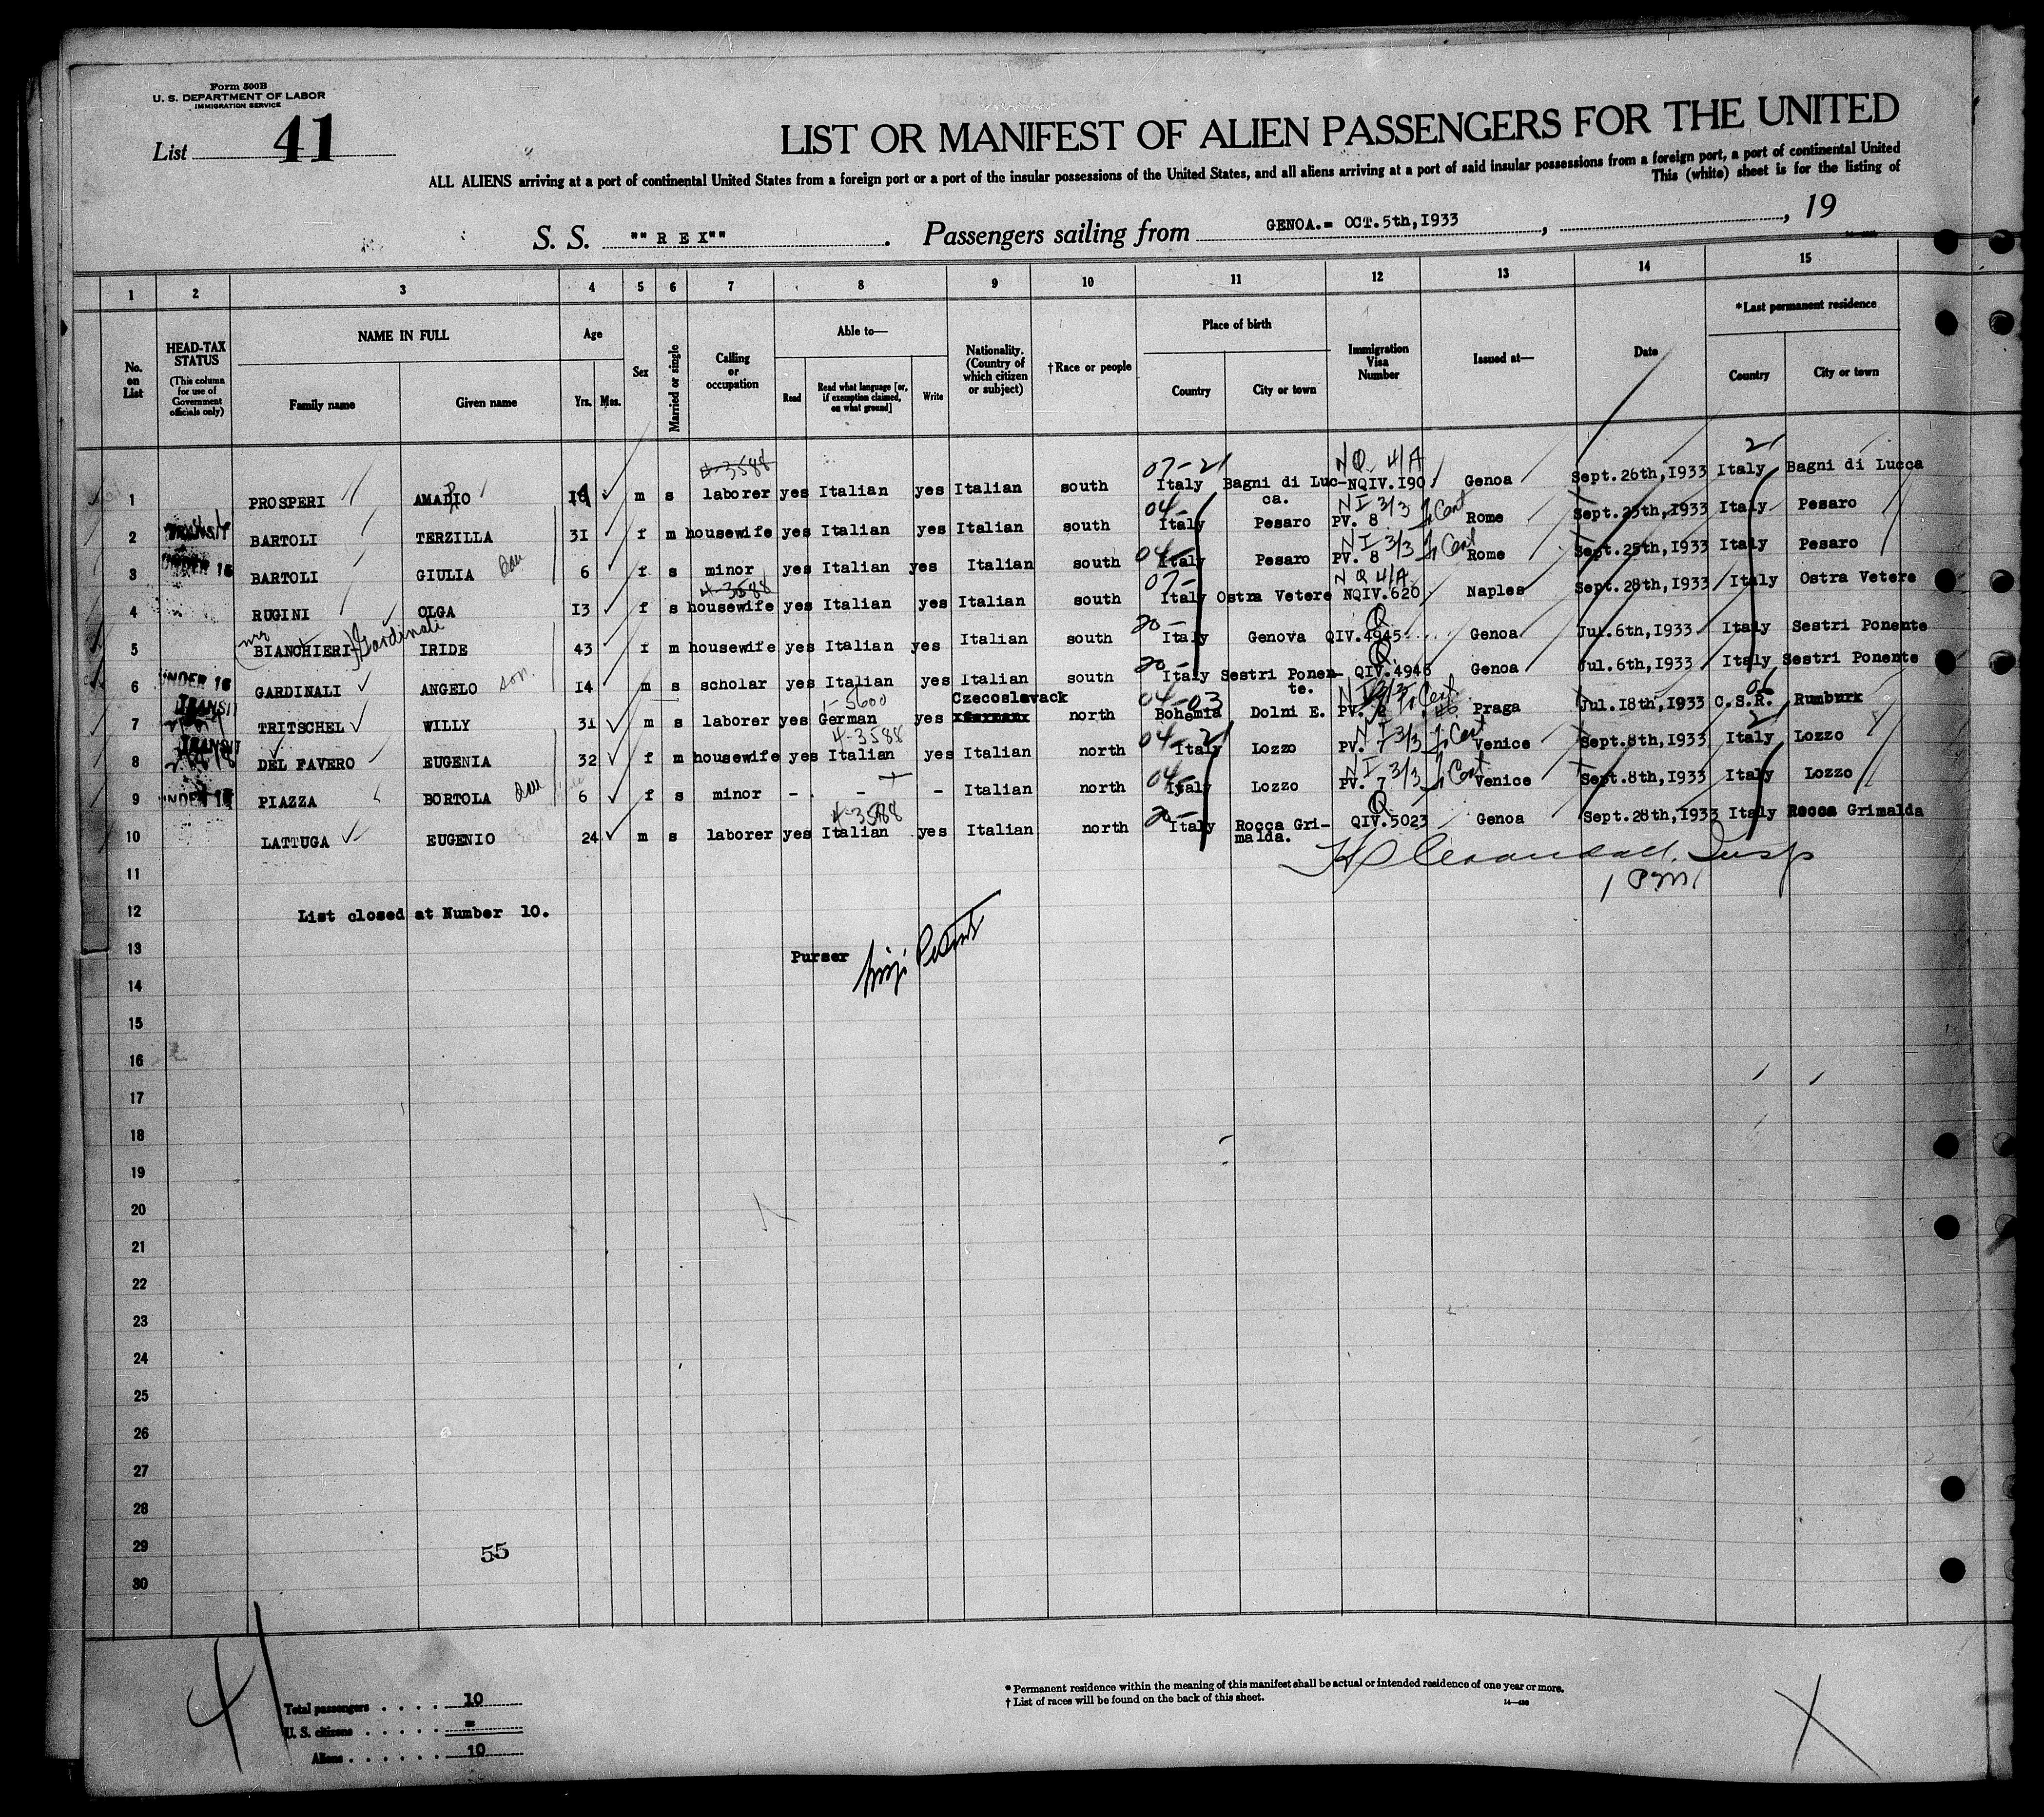 Form 500B
U. S. DEPARTMENT OF LABOR
IMMIGRATION SERVICE
List 41
LIST OR MANIFEST OF ALIEN PASSENGERS FOR THE UNITED
ALL ALIENS arriving at a port of continental United States from a foreign port or a port of the insular possessions of the United States, and all aliens arriving at a port of said insular possessions from a foreign port, a port of continental United
This (white) sheet is for the listing of
S. S. "" R E X"" . Passengers sailing from GENOA.= OCT.5th,I933 , , 19
1 2 3 4 5 6 7 8 9 10 11 12 13 14 15
No. on List
HEAD-TAX STATUS
(This column for use of Government officials only)
NAME IN FULL
Family name Given name
Age
Yrs. Mos.
Sex
Married or single
Calling or occupation
Able to—
Read Read what language [or, if exemption claimed, on what ground] Write
Nationality. (Country of which citizen or subject)
†Race or people
Place of birth
Country City or town
Immigration Visa Number
Issued at—
Date
*Last permanent residence
Country City or town
4-3588 07-21 NQ 4/A 21
1 PROSPERI m s laborer yes Italian yes Italian south Italy Bagni di Luc- NQIV.I90. Genoa Sept.26th,I933 Italy Bagni di Lucca
ca.
04- NI 3/3 Cent
2 TRANSIT BARTOLI TERZILLA 3I f m housewife yes Italian yes Italian south Italy Pesaro PV. 8 Rome Sept.25th,I933 Italy Pesaro
NI 3/3 Cent
3 UNDER 16 BARTOLI GIULIA dau 6 f s minor yes Italian yes Italian south 04- Italy Pesaro PV. 8 Rome Sept.25th,I933 Italy Pesaro
4-3588 07- NQ 4/A
4 RUGINI OLGA I3 f s housewife yes Italian yes Italian south Italy Ostra Vetere NQIV.620 Naples Sept.28th,I933 Italy Ostra Vetere
20- Q
5 (mrs BIANCHIERI) Gardinali IRIDE 43 f m housewife yes Italian yes Italian south Italy Genova QIV.4945 Genoa Jul.6th,I933 Italy Sestri Ponente
20- Q
6 UNDER 16 GARDINALI ANGELO son I4 m s scholar yes Italian yes Italian south Italy Sestri Ponen- QIV.4946 Genoa Jul.6th,I933 Italy Sestri Ponente
te.
TRANSIT 1-5600 Czecoslavack 04-03 NI 3/3 Cent
7 TRITSCHEL WILLY 3I m s laborer yes German yes north Bohemia Dolni E. PV. Praga Jul.I8th,I933 C.S.R. Rumburk
TRANSIT 4-3588 04-21 NI 3/3 Cent 21
8 DEL FAVERO EUGENIA 32 f m housewife yes Italian yes Italian north Italy Lozzo PV. 7 Venice Sept.8th,I933 Italy Lozzo
04- NI 3/3 Cent
9 UNDER 16 PIAZZA BORTOLA dau 6 f s minor - - - Italian north Italy Lozzo PV. 7 Venice Sept.8th,I933 Italy Lozzo
4-3588 20- Q
10 LATTUGA EUGENIO 24 m s laborer yes Italian yes Italian north Italy Rocca Gri- QIV.5023 Genoa Sept.28th,I933 Italy Rocca Grimalda
malda.
11 Insp
1 PM
12 List closed at Number 10.
13 Purser
14
15
16
17
18
19
20
21
22
23
24
25
26
27
28
29 55
30
41
Total passengers . . . . 10
U. S. citizens . . . . . =
Aliens . . . . . . 10
* Permanent residence within the meaning of this manifest shall be actual or intended residence of one year or more.
† List of races will be found on the back of this sheet.
14—430